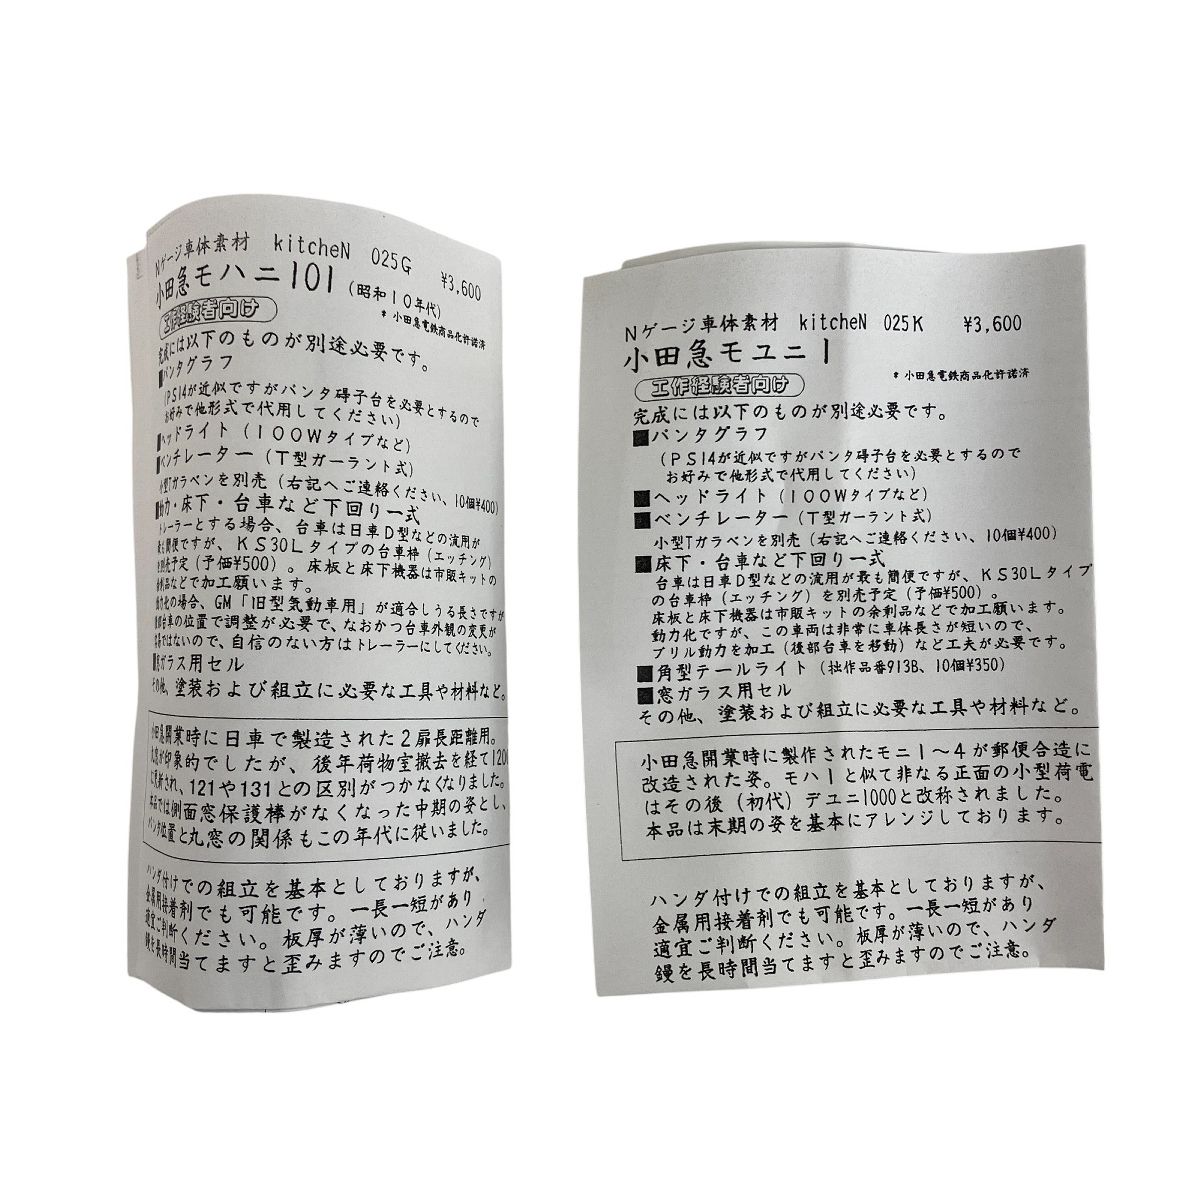 Nゲージ車体素材 kitcheN 025G ¥3,600
小田急モハニ101(昭和10年代)
工作経験者向け
* 小田急電鉄商品化許諾済
完成には以下のものが別途必要です。
■パンタグラフ
(PS14が近似ですがパンタ碍子台を必要とするので
お好みで他形式で代用してください)
■ヘッドライト(100Wタイプなど)
■ベンチレーター(T型ガーラント式)
小型Tガラベンを別売(右記へご連絡ください、10個¥400)
■動力・床下・台車など下回り一式
トレーラーとする場合、台車は日車D型などの流用が
最も簡便ですが、KS30Lタイプの台車枠(エッチング)
を別売予定(予価¥500)。床板と床下機器は市販キットの
余利品などで加工願います。
動力化の場合、GM「旧型気動車用」が適合しうる長さですが
台車の位置で調整が必要で、なおかつ台車外観の変更が
ではないので、自信のない方はトレーラーにしてください。
■窓ガラス用セル
その他、塗装および組立に必要な工具や材料など。
小田急開業時に日車で製造された2扉長距離用。
丸窓が印象的でしたが、後年荷物室撤去を経て1200
に更新され、121や131との区別がつかなくなりました。
本品では側面窓保護棒がなくなった中期の姿とし、
パンタ位置と丸窓の関係もこの年代に従いました。
ハンダ付けでの組立を基本としておりますが、
金属用接着剤でも可能です。一長一短があり
適宜ご判断ください。板厚が薄いので、ハンダ
鏝を長時間当てますと歪みますのでご注意。
Nゲージ車体素材 kitcheN 025K ¥3,600
小田急モユニ1
* 小田急電鉄商品化許諾済
工作経験者向け
完成には以下のものが別途必要です。
■パンタグラフ
(PS14が近似ですがパンタ碍子台を必要とするので
お好みで他形式で代用してください)
■ヘッドライト(100Wタイプなど)
■ベンチレーター(T型ガーラント式)
小型Tガラベンを別売(右記へご連絡ください、10個¥400)
■床下・台車など下回り一式
台車は日車D型などの流用が最も簡便ですが、KS30Lタイプ
の台車枠(エッチング)を別売予定(予価¥500)。
床板と床下機器は市販キットの余利品などで加工願います。
動力化ですが、この車両は非常に車体長さが短いので、
ブリル動力を加工(後部台車を移動)など工夫が必要です。
■角型テールライト(拙作品番913B、10個¥350)
■窓ガラス用セル
その他、塗装および組立に必要な工具や材料など。
小田急開業時に製作されたモニ1〜4が郵便合造に
改造された姿。モハ1と似て非なる正面の小型荷電
はその後(初代)デユニ1000と改称されました。
本品は末期の姿を基本にアレンジしております。
ハンダ付けでの組立を基本としておりますが、
金属用接着剤でも可能です。一長一短があり
適宜ご判断ください。板厚が薄いので、ハンダ
鏝を長時間当てますと歪みますのでご注意。